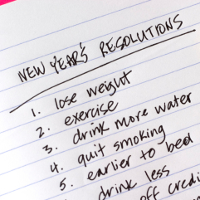 NEW YEAR'S RESOLUTIONS
1. lose weight
2. exercise
3. drink more water
4. quit smoking
5. earlier to bed
drink less
off credi